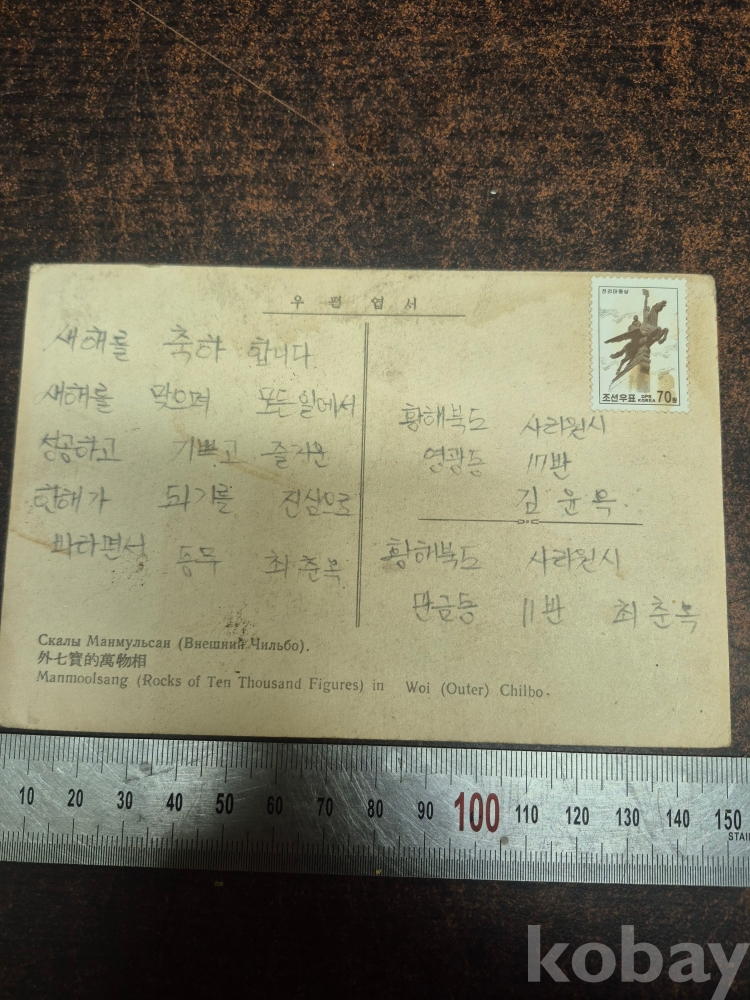 우편엽서
천리마동상
조선우표 DPR KOREA 70원
새해를 축하 합니다
새해를 맞으며 모든일에서
성공하고 기쁘고 즐거운
한해가 되기를 진심으로
바라면서 동무 최춘옥
황해북도 사리원시
영광동 17반
김윤옥
황해북도 사리원시
만금동 11반 최춘옥
Скалы Манмульсан (Внешний Чильбо).
外七寶的萬物相
Manmoolsang (Rocks of Ten Thousand Figures) in Woi (Outer) Chilbo.
10 20 30 40 50 60 70 80 90 100 110 120 130 140 150
STAIN
kobay